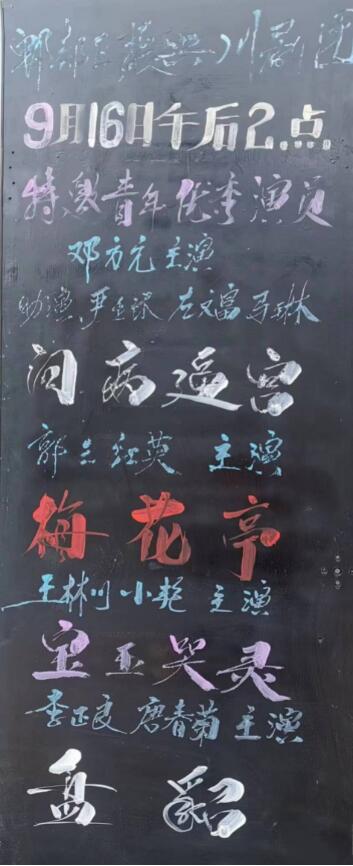 郫都区振兴川剧团
9月16日午后2.点
特邀青年优秀演员
邓方元主演
助演 左文富 马琳
问病逼宫
郭兰红英 主演
梅花亭
王林川 小艳 主演
宝玉哭灵
李正良 唐春菊 主演
盘貂